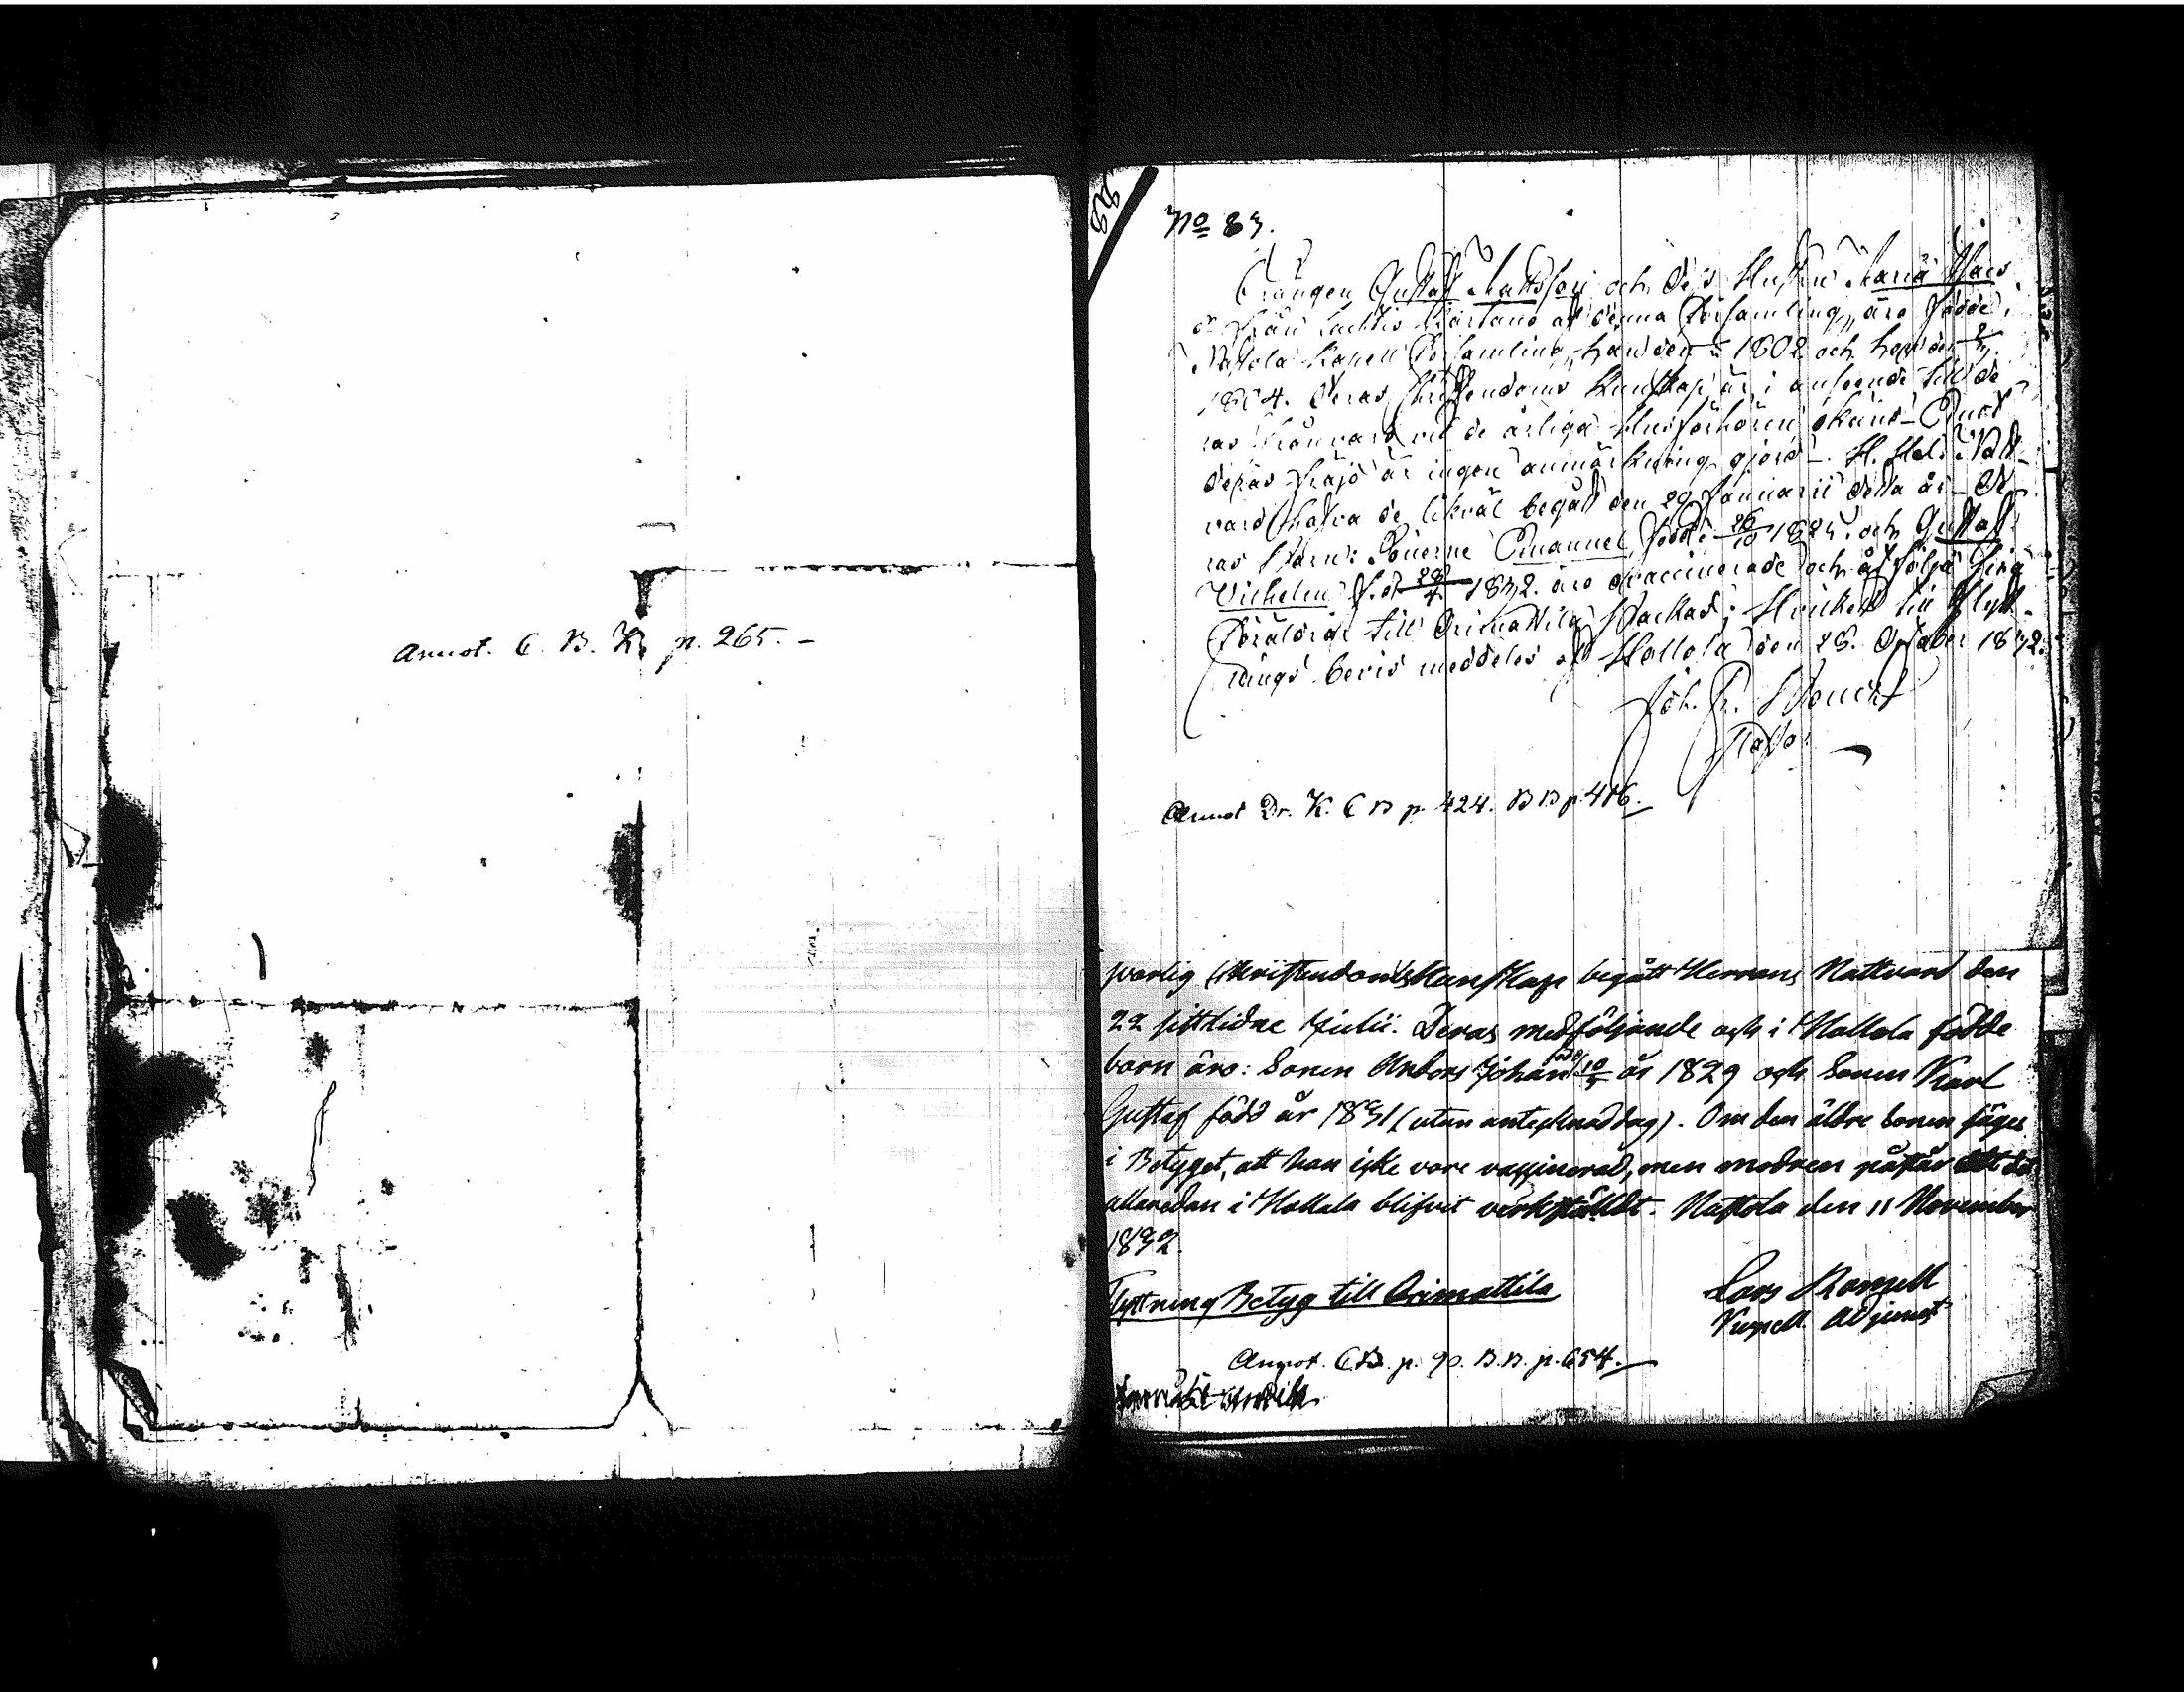 Annot. C. B. K. p. 265. –
No 83.
Drängen Gustaf Mattsson och dess Hustru Maria
från Lachtis af denna Församling, äro födde i
Nastola Kapell Församling, han den 1802 och hon den 2/3
1804. Deras Christendoms Kunskap är i anseende till de
ras frånvaro vid de årliga Husförhören okänd – Emot
deras frejd är ingen anmärkning gjord –. H. H. Natt-
vard hafva de likväl begått den 29 Januarii detta år – De
ras Barn: Sönerne Emanuel, född 26/10 och Gustaf
Vilhelm f. d. 1832. äro ovaccinerade och åtfölja sina
Föräldrar till Orimattila Hvilket till Flytt-
nings bevis meddeles af Hollola den 28. October 1832.
Joh. Fr.
Pastor
Annot Dr. K. C B p. 424. B B p 416.
svarlig Christendomskunskap begått Herrans Nattvard den
22 sistlidne Julii. Deras medföljande och i Hollola födde
barn äro: Sonen Anders Johan född 10/5 år 1829 och Sonen Karl
Gustaf född år 1831 (utan antecknad dag). Om den äldre sonen säges
i Betyget, att han icke vore vaccinerad, men modren påstår att det
alleredan i Hollola blifvit verkställdt. Nastola den 11 November
1832.
Flyttning Betyg till Orimattila
Lars
Kapell. Adjunct
Annot. C B. p. 90. B. B. p. 654.